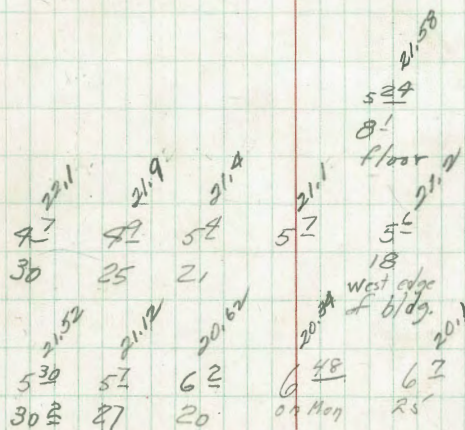 21.58
5 24
8 1
floor
22.1 21.9 21.4 21.1 21.2
4 7 4 9 5 4 5 7 5 6
30 25 21 18
west edge
of bldg.
21.52 21.12 20.62 20.34 20.1
5 30 5 7 6 2 6 48 6 7
30 27 20 on Mon 25